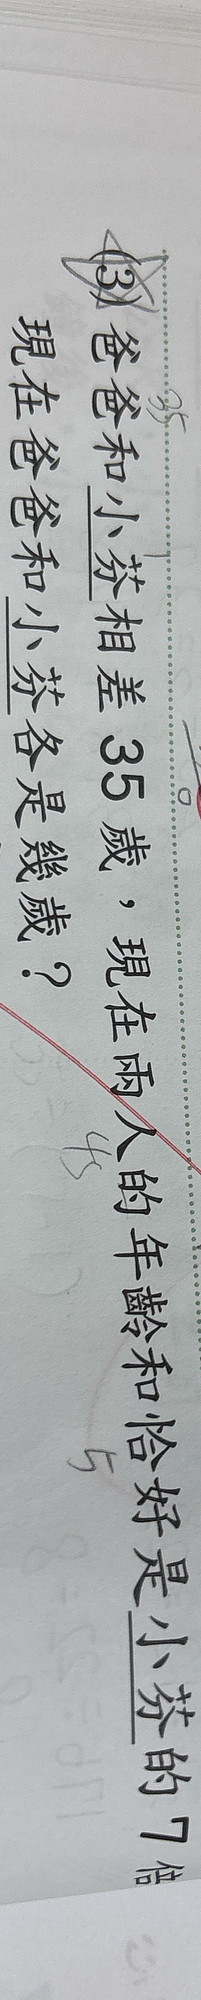 (3) 爸爸和小芬相差35歲，現在兩人的年齡和恰好是小芬的7倍
現在爸爸和小芬各是幾歲？
35
45
5